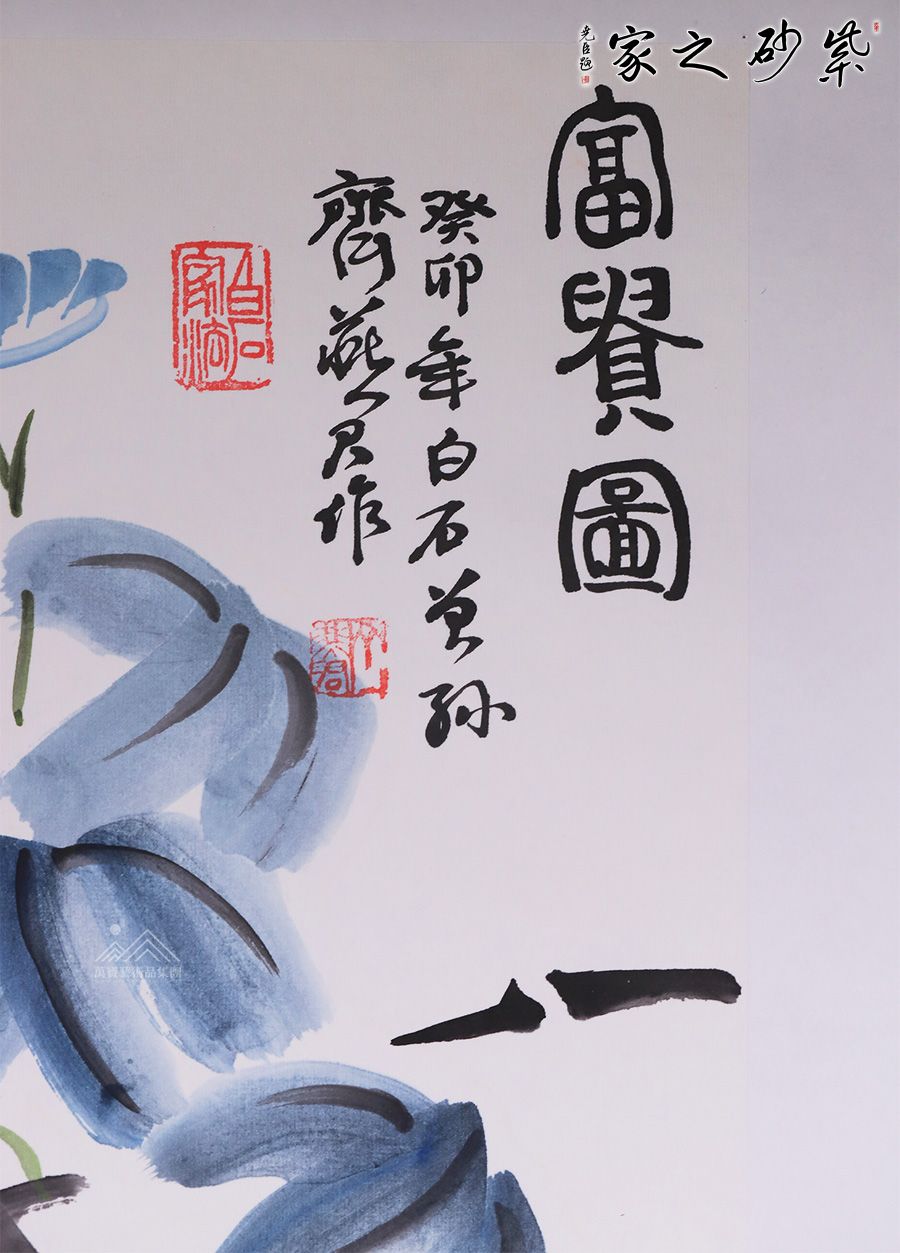 紫砂之家
堯臣題
富貴圖
癸卯年白石曾孫
齊燕君作
白石家法
萬寶藝術品集團